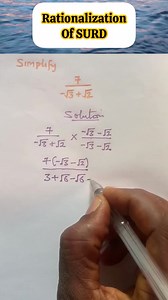 Rationalization
Of SURD
Simplify
7
-√3 + √2
Solution
7 × -√3 - √2
-√3 + √2 -√3 - √2
7(-√3 - √2)
3 + √6 - √6 -